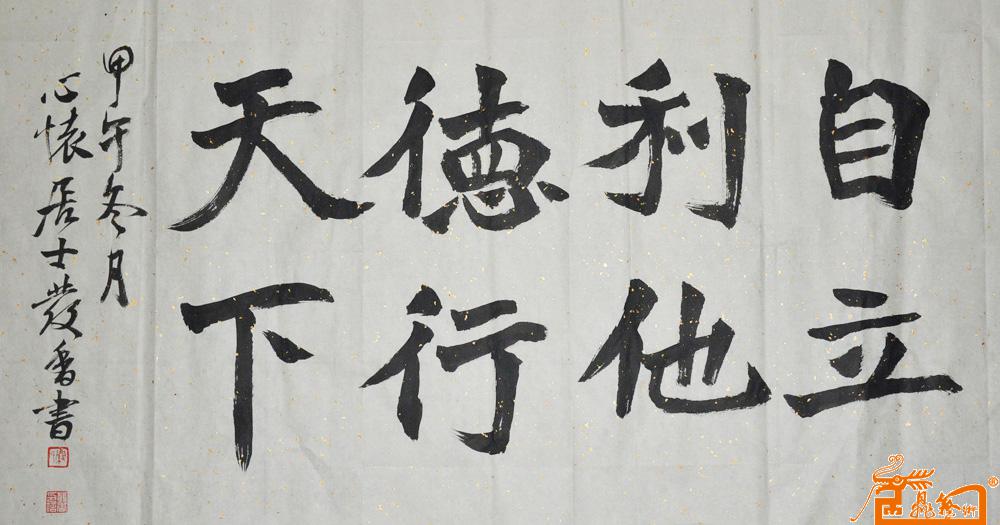 自立
利他
德行
天下
甲午冬月
心怀居士发香書